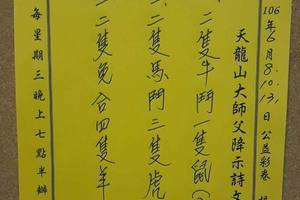 106年6月8.10.13.日公益彩卷
天龍山大師父降示詩文
二隻牛鬥一隻鼠
二隻馬鬥三隻虎
二隻兔合四隻羊
每星期三晚上七點半辦